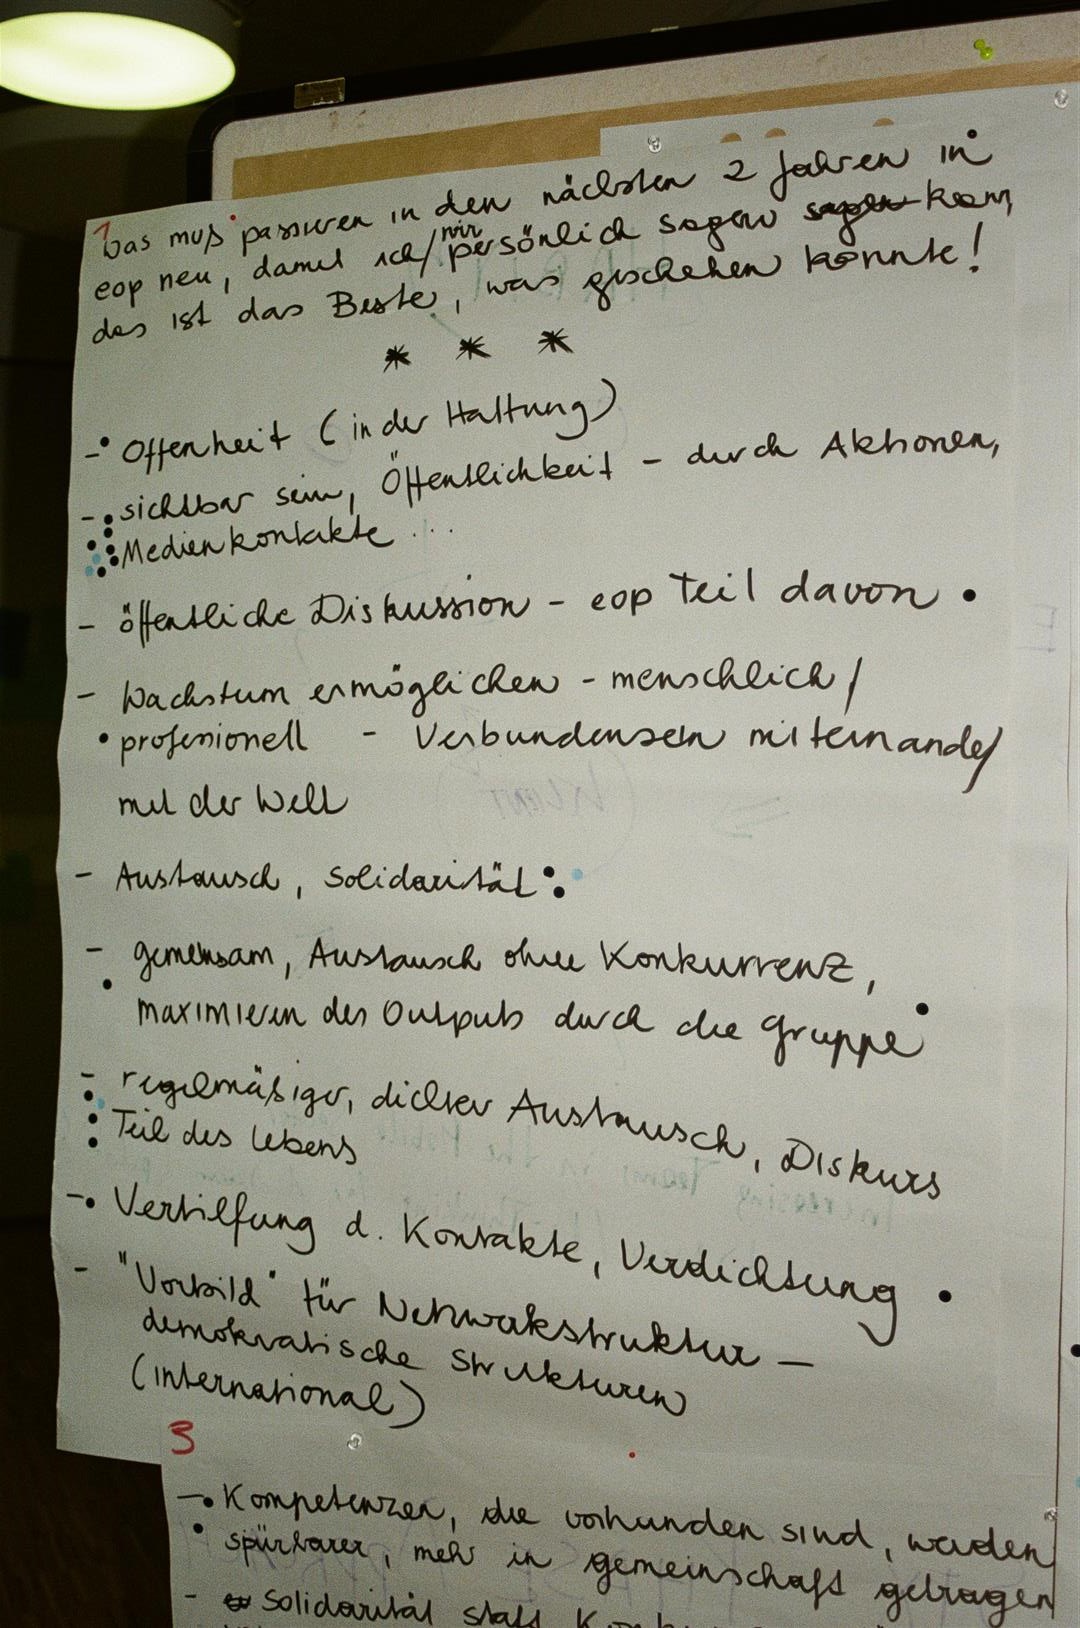 1
Was muß passieren in den nächsten 2 Jahren in
eop neu, damit ich/mir persönlich sagen sagen kann,
das ist das Beste, was geschehen könnte!
* * *
- Offenheit (in der Haltung)
- sichtbar sein, Öffentlichkeit - durch Aktionen,
Medienkontakte ...
- öffentliche Diskussion - eop Teil davon
- Wachstum ermöglichen - menschlich /
professionell - Verbundensein miteinander/
mit der Welt
- Austausch, Solidarität
- gemeinsam, Austausch ohne Konkurrenz,
maximieren des Outputs durch die Gruppe
- regelmäßiger, dichter Austausch, Diskurs
Teil des Lebens
- Vertiefung d. Kontakte, Verdichtung
- "Vorbild" für Netzwerkstruktur -
demokratische Strukturen
(international)
3
- Kompetenzen, die vorhanden sind, werden
spürbarer, mehr in gemeinschaft getragen
- Solidarität statt